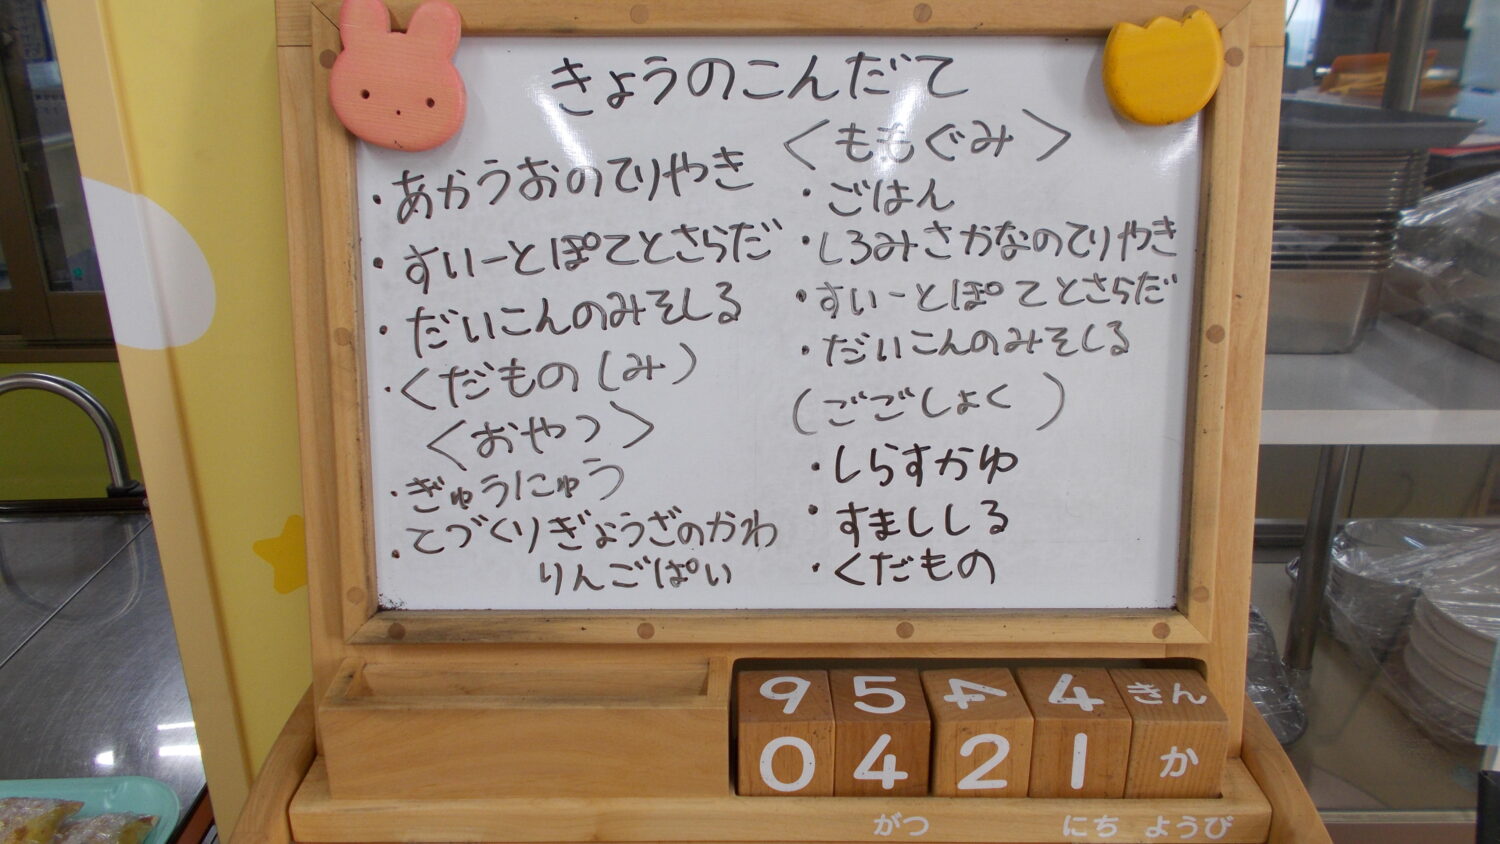 きょうのこんだて
・あかうおのてりやき
・すいーとぽてとさらだ
・だいこんのみそしる
・くだもの(み)
<おやつ>
・ぎゅうにゅう
・てづくりぎょうざのかわ
りんごぱい
<ももぐみ>
・ごはん
・しろみさかなのてりやき
・すいーとぽてとさらだ
・だいこんのみそしる
(ごごしょく)
・しらすかゆ
・すまししる
・くだもの
9 5 4 4 きん
0 4 2 1 か
がつ にち ようび